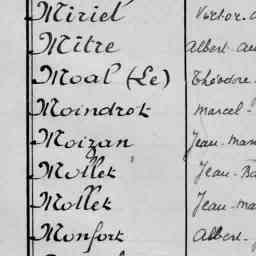 Miriel Victor
Mitre Albert
Moal (Le) Théodore
Moindrot Marcel
Moizan Jean
Mollet Jean
Mollet Jean
Monfort Albert